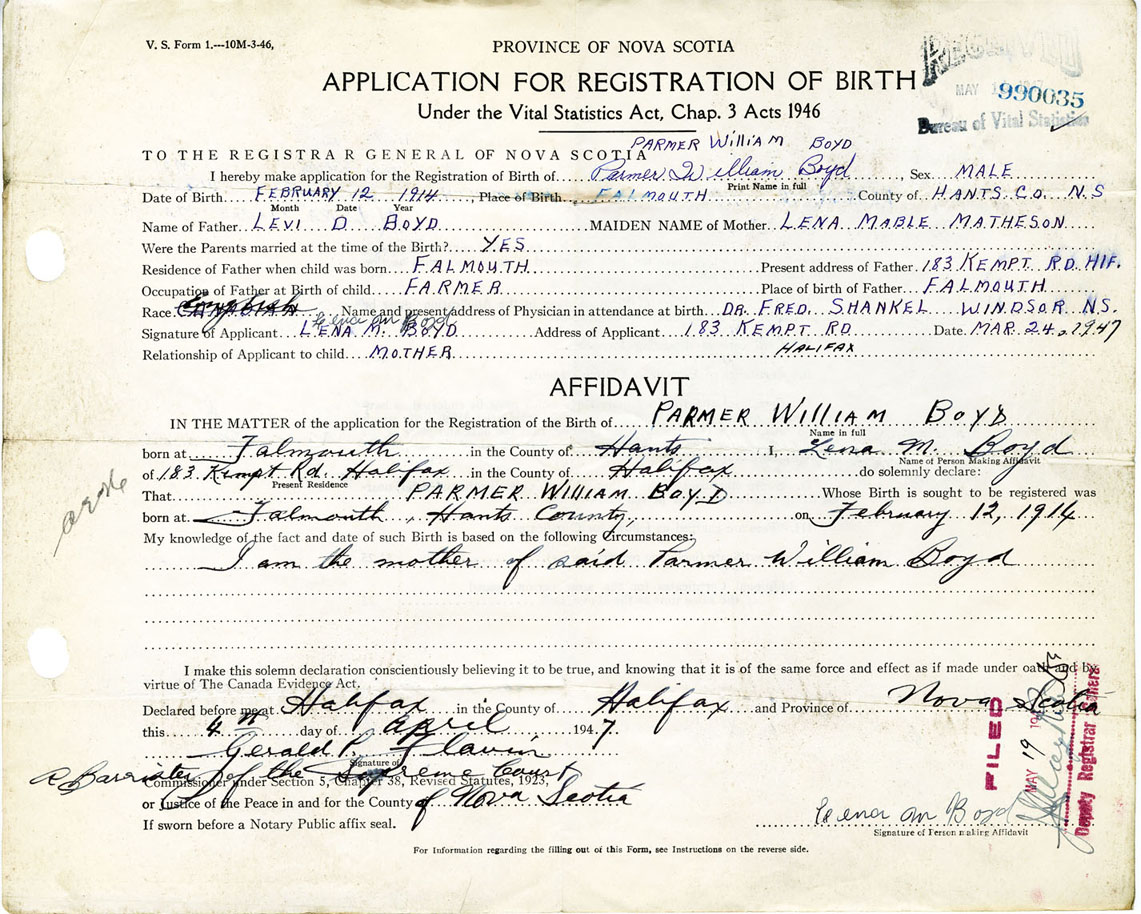 V. S. Form 1.---10M-3-46,
PROVINCE OF NOVA SCOTIA
RECEIVED
APPLICATION FOR REGISTRATION OF BIRTH
MAY
990035
Under the Vital Statistics Act, Chap. 3 Acts 1946
Bureau of Vital Statistics
PARMER WILLIAM BOYD
TO THE REGISTRAR GENERAL OF NOVA SCOTIA
I hereby make application for the Registration of Birth of Parmer William Boyd, Sex MALE
Print Name in full
Date of Birth FEBRUARY 12 1914, Place of Birth FALMOUTH County of HANTS CO. N.S
Month Date Year
Name of Father LEVI D BOYD MAIDEN NAME of Mother LENA MABLE MATHESON
Were the Parents married at the time of the Birth? YES
Residence of Father when child was born FALMOUTH Present address of Father 183 KEMPT RD HIF.
Occupation of Father at Birth of child FARMER Place of birth of Father FALMOUTH
Race CANADIAN English Name and present address of Physician in attendance at birth DR. FRED. SHANKEL WINDSOR N.S.
Lena M Boyd
Signature of Applicant LENA M. BOYD Address of Applicant 183 KEMPT RD Date MAR 24, 1947
Relationship of Applicant to child MOTHER HALIFAX
AFFIDAVIT
IN THE MATTER of the application for the Registration of Birth of PARMER WILLIAM BOYD
Name in full
born at Falmouth in the County of Hants I, Lena M. Boyd
Name of Person Making Affidavit
of 183 Kempt Rd. Halifax in the County of Halifax do solemnly declare:
Present Residence
That PARMER WILLIAM BOYD Whose Birth is sought to be registered was
born at Falmouth, Hants County, on February 12, 1914
My knowledge of the fact and date of such Birth is based on the following Circumstances:
I am the mother of said Parmer William Boyd
I make this solemn declaration conscientiously believing it to be true, and knowing that it is of the same force and effect as if made under oath and by
virtue of The Canada Evidence Act.
Declared before me at Halifax in the County of Halifax and Province of Nova Scotia
this 4th day of April 1947.
Gerald P. Flavin
Signature of
A Barrister of the Supreme Court
Commissioner under Section 5, Chapter 38, Revised Statutes, 1923,
or Justice of the Peace in and for the County of Nova Scotia
If sworn before a Notary Public affix seal.
Lena M Boyd
Signature of Person making Affidavit
FILED
MAY 19 1947
Deputy Registrar General
For Information regarding the filling out of this Form, see Instructions on the reverse side.